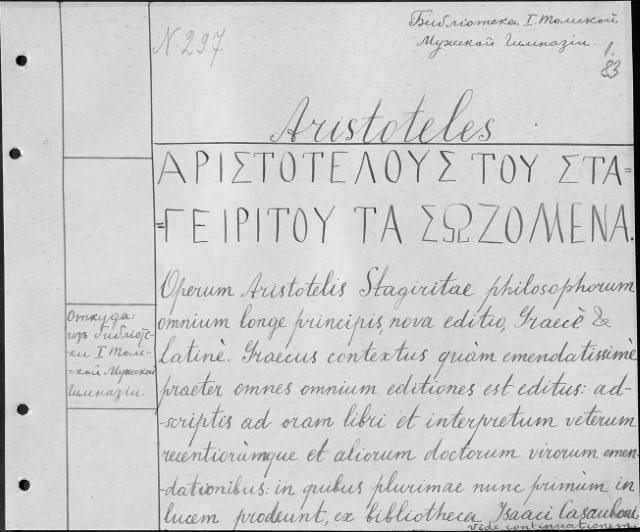 N. 297.
Библіотека I. Томской
Мужской Гимназіи.
1.
83
Aristoteles
ΑΡΙΣΤΟΤΕΛΟΥΣ ΤΟΥ ΣΤΑ=
=ΓΕΙΡΙΤΟΥ ΤΑ ΣΩΖΟΜΕΝΑ.
Operum Aristotelis Stagiritae philosophorum
omnium longe principis, nova editio, Graecè &
latinè. Graecus contextus quàm emendatissimè
praeter omnes omnium editiones est editus: ad-
-scriptis ad oram libri et interpretum veterum
recentiorùmque et aliorum doctorum virorum emen-
-dationibus: in quibus plurimae nunc primùm in
lucem prodeunt, ex bibliotheca Isaaci Casauboni
Vide continuationem
Откуда:
изъ библіоте-
ки I Том-
-ской Мужской
Гимназіи.